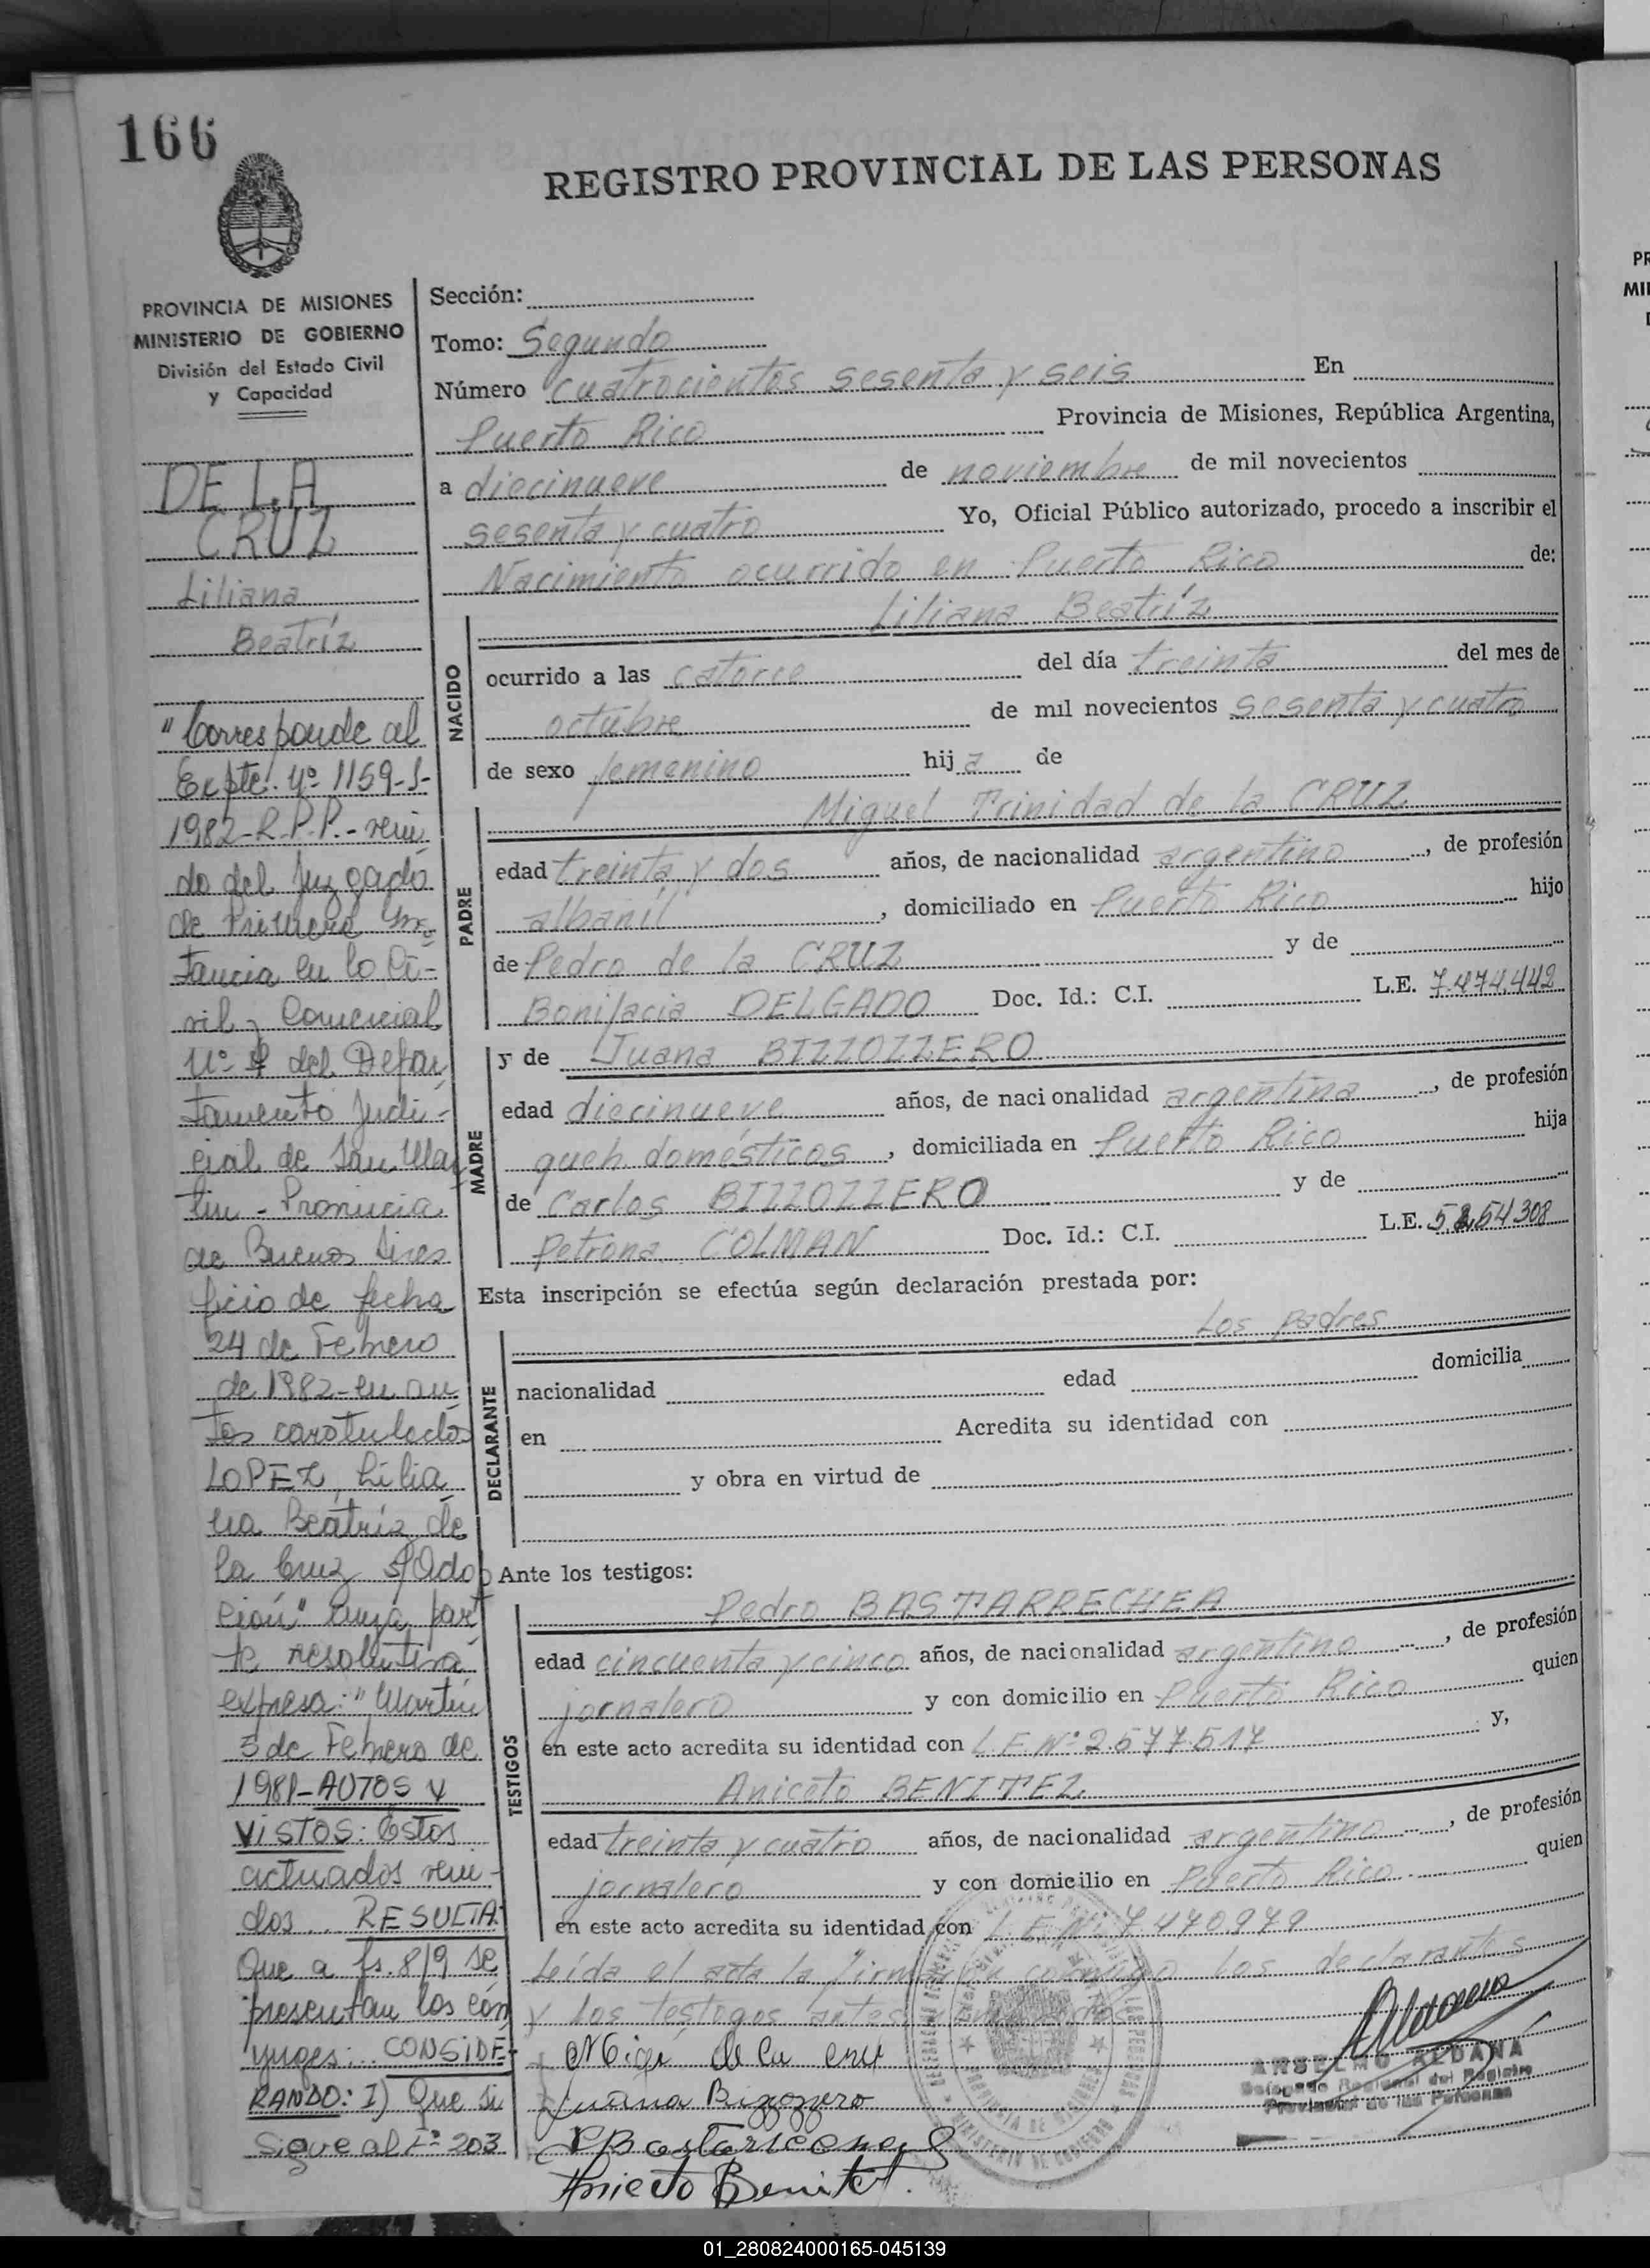 166
REGISTRO PROVINCIAL DE LAS PERSONAS
PROVINCIA DE MISIONES
MINISTERIO DE GOBIERNO
División del Estado Civil
y Capacidad
DE LA
CRUZ
Liliana
Beatríz
"Corresponde al
Expte. Nº 1159-S-
1982-R.P.P.- veni
do del Juzgado
de Primera Ins
tancia en lo Ci-
vil y Comercial
Nº del Depar
tamento Judi-
cial de San Mar
tin - Provincia
de Buenos Aires
ficio de fecha
24 de Febrero
de 1982 - en au
tos caratulados
LOPEZ, Lilia
na Beatríz de
la Cruz s/Adop
ción" cuya par
te resolutiva
expresa: "Martín
5 de Febrero de
1981- AUTOS Y
VISTOS: Estos
actuados veni-
dos... RESULTA
Que a fs. 8/9 se
presentan los cón
yuges:... CONSIDE-
RANDO: I) Que si
Sigue al Fº 203
Sección:
Tomo: Segundo
Número cuatrocientos sesenta y seis En
Puerto Rico Provincia de Misiones, República Argentina,
a diecinueve de noviembre de mil novecientos
sesenta y cuatro Yo, Oficial Público autorizado, procedo a inscribir el
Nacimiento ocurrido en Puerto Rico de:
NACIDO
Liliana Beatríz
ocurrido a las catorce del día treinta del mes de
octubre de mil novecientos sesenta y cuatro
de sexo femenino hija de
PADRE
Miguel Trinidad de la CRUZ
edad treinta y dos años, de nacionalidad argentino, de profesión
albañil, domiciliado en Puerto Rico hijo
de Pedro de la CRUZ y de
Bonifacia DELGADO Doc. Id.: C.I. L.E. 7.474.442
MADRE
y de Juana BIZZOZZERO
edad diecinueve años, de nacionalidad argentina, de profesión
queh. domésticos, domiciliada en Puerto Rico hija
de Carlos BIZZOZZERO y de
Petrona COLMAN Doc. Id.: C.I. L.E.
Esta inscripción se efectúa según declaración prestada por:
DECLARANTE
Los padres
nacionalidad edad domicilia
en Acredita su identidad con
y obra en virtud de
Ante los testigos:
TESTIGOS
Pedro BASTARRECHEA
edad cincuenta y cinco años, de nacionalidad argentino, de profesión
jornalero y con domicilio en Puerto Rico quien
en este acto acredita su identidad con L.E. Nº 2.577.517 y,
Aniceto BENITEZ
edad treinta y cuatro años, de nacionalidad argentino, de profesión
jornalero y con domicilio en Puerto Rico quien
en este acto acredita su identidad con L.E. Nº 7.470.979
Leída el acta la firman conmigo los declarantes
y los testogos antes
de la cru
Juana Bizozzero
Aniceto Benitez
ANSELMO ALDANA
Delegado Regional del Registro
Provincial de las Personas
01_280824000165-045139